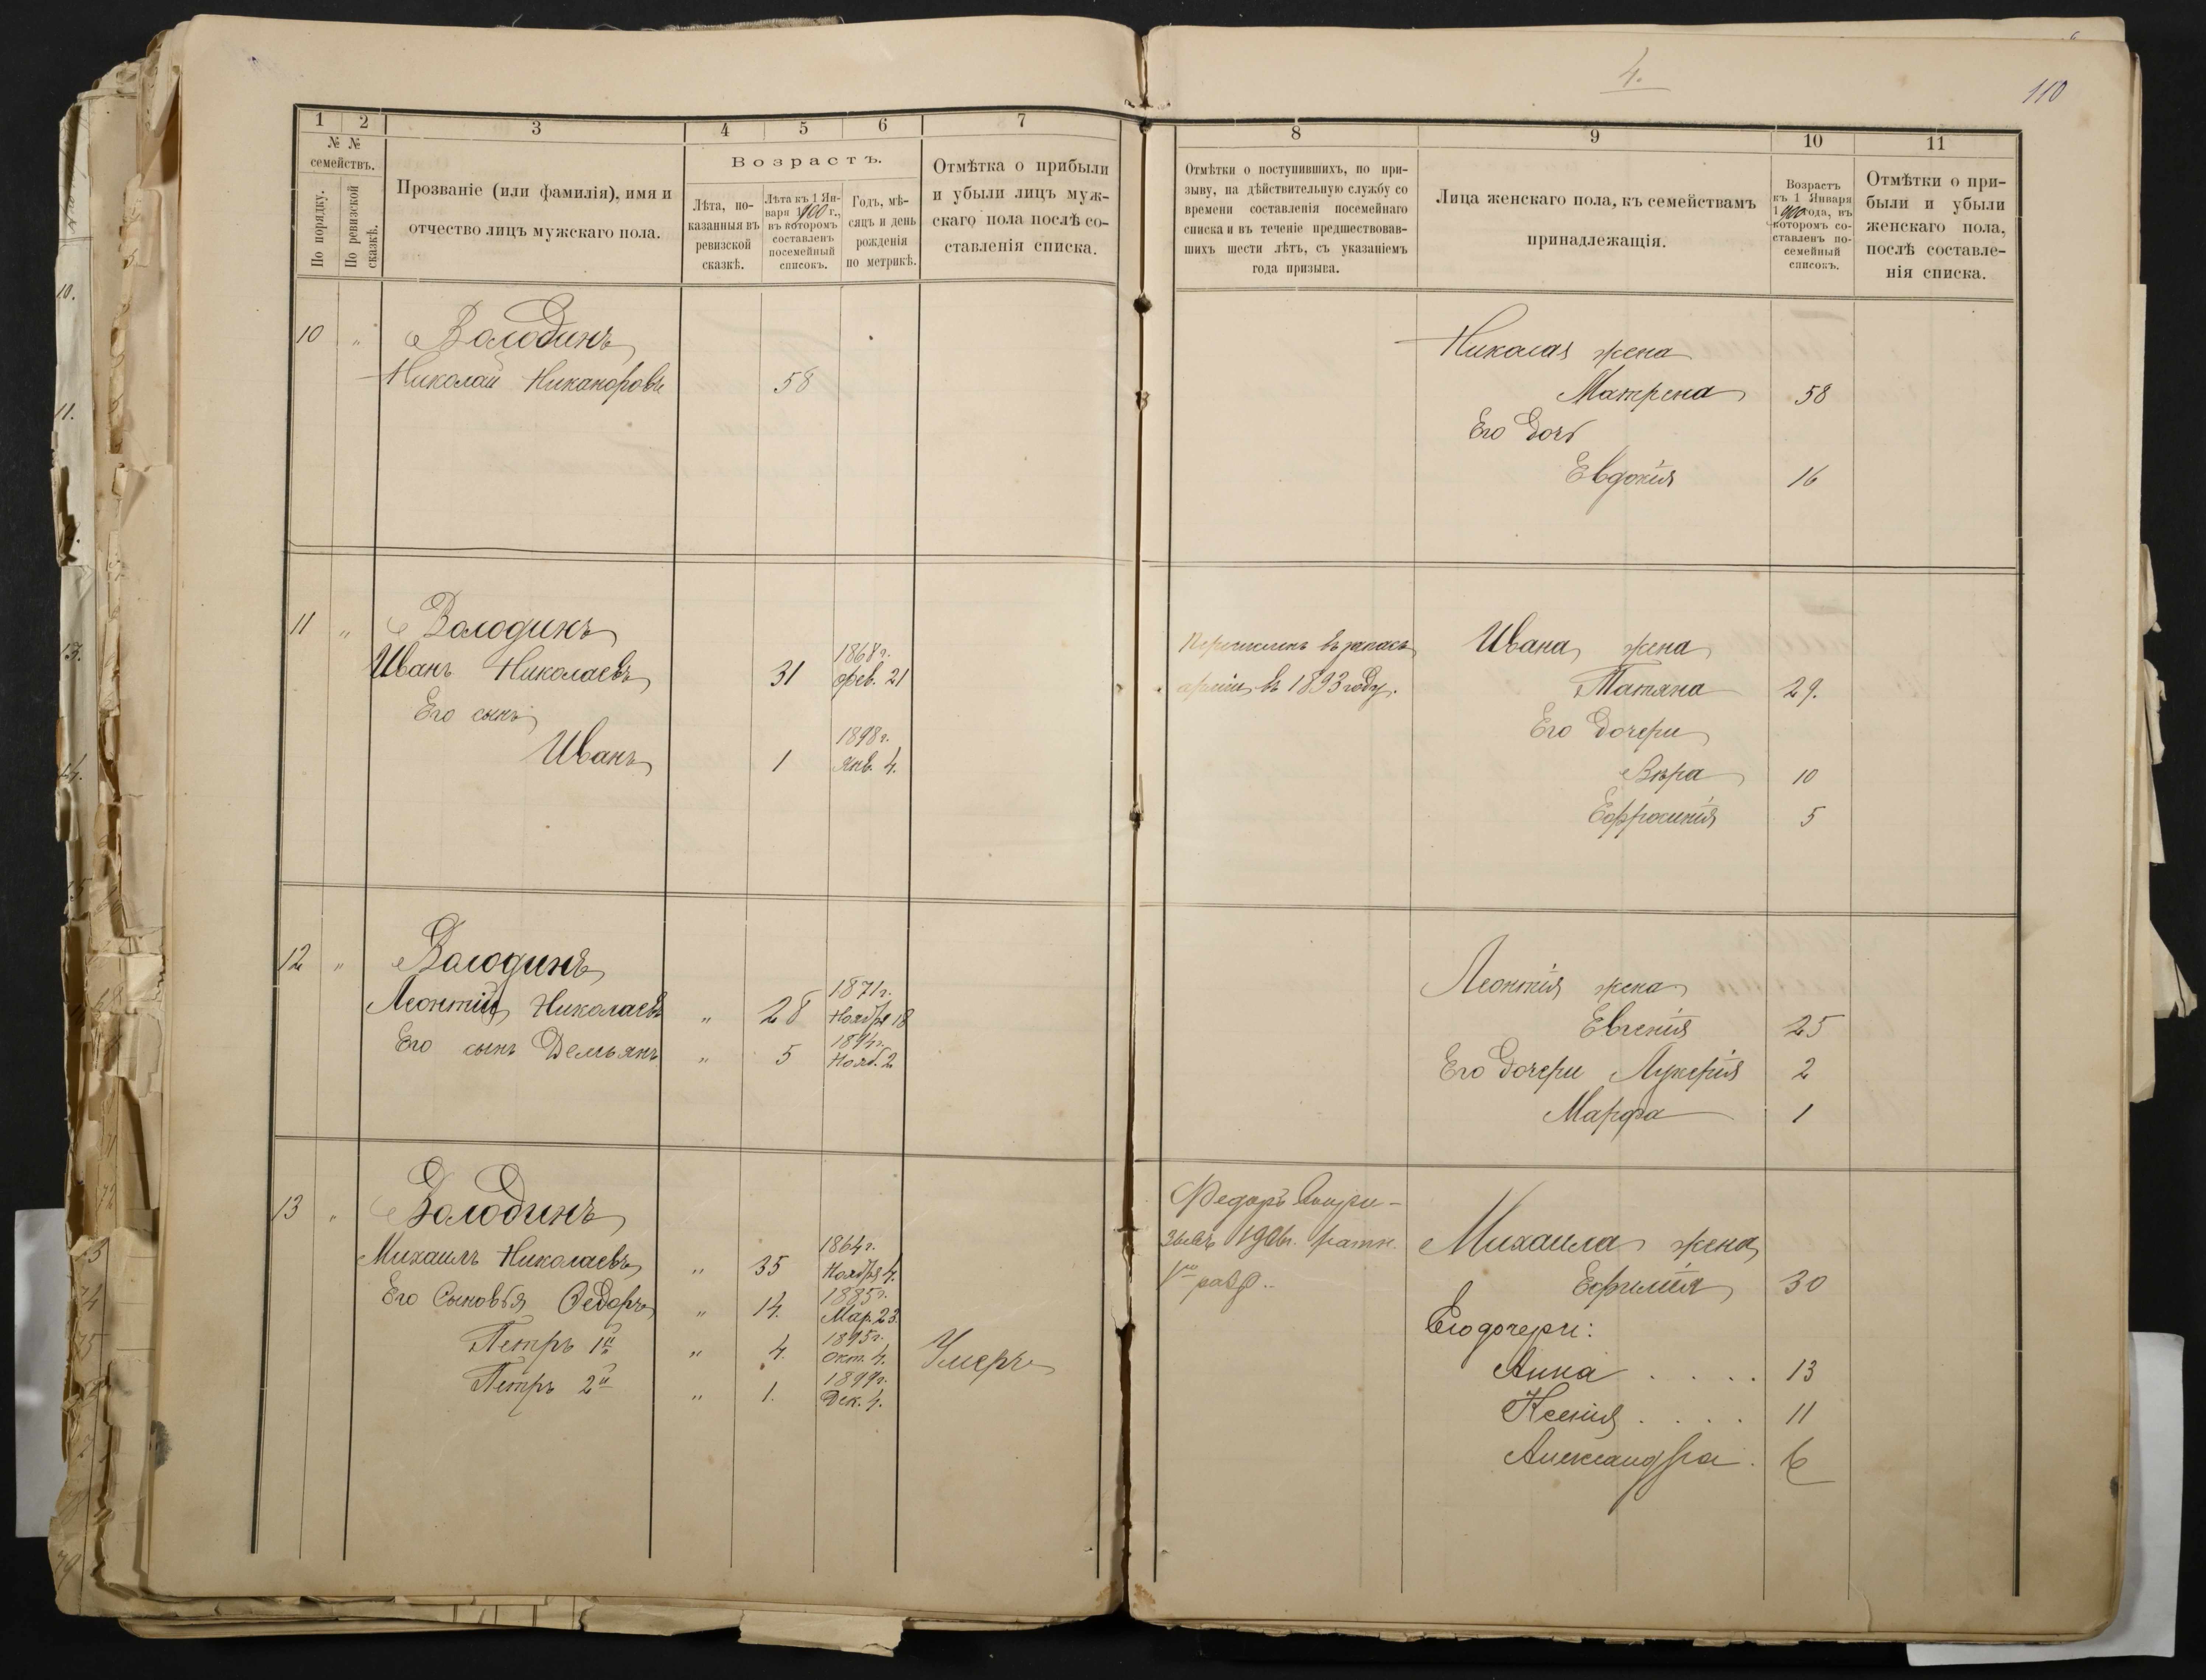 4.
110
1 2 3 4 5 6 7
№ №
семействъ.
По порядку.
По ревизской
сказкѣ.
Прозваніе (или фамилія), имя и
отчество лицъ мужскаго пола.
Возрастъ.
Лѣта, по-
казанныя въ
ревизской
сказкѣ.
Лѣта къ 1 Ян-
варя 1900 г.,
въ которомъ
составленъ
посемейный
списокъ.
Годъ, мѣ-
сяцъ и день
рожденія
по метрикѣ.
Отмѣтка о прибыли
и убыли лицъ муж-
скаго пола послѣ со-
ставленія списка.
10 „ Володинъ
Николай Никаноровъ 58
11 „ Володинъ
Иванъ Николаевъ 31 1868 г. фев. 21
Его сынъ
Иванъ 1 1898 г. Янв. 4.
12 „ Володинъ
Леонтій Николаевъ „ 28 1871 г. Ноября 18
Его сынъ Демьянъ „ 5 1894 г. Нояб. 2
13 „ Володинъ
Михаилъ Николаевъ „ 35 1864 г. Ноября 4.
Его Сыновья Ѳедоръ „ 14. 1885 г. Мар. 23.
Петръ 1й „ 4. 1895 г. Окт. 4. Умеръ
Петръ 2й „ 1. 1899 г. Дек. 4.
8 9 10 11
Отмѣтки о поступившихъ, по при-
зыву, на дѣйствительную службу со
времени составленія посемейнаго
списка и въ теченіе предшествовав-
шихъ шести лѣтъ, съ указаніемъ
года призыва.
Лица женскаго пола, къ семействамъ
принадлежащія.
Возрастъ
къ 1 Января
1900 года, въ
которомъ со-
ставленъ по-
семейный
списокъ.
Отмѣтки о при-
были и убыли
женскаго пола,
послѣ составле-
нія списка.
Николая жена
Матрена 58
Его дочь
Евдокія 16
Перечисленъ въ запасъ
арміи въ 1893 году.
Ивана жена
Татяна 29.
Его дочери
Вѣра 10
Ефросинія 5
Леонтія жена
Евгенія 25
Его дочери Лукерія 2
Марфа 1
Федоръ
зывъ 1906 г. ратн.
1го разр..
Михаила жена
Ефимія 30
Его дочери:
Анна . . . . 13
Ксенія . . . . 11
Александра . 6